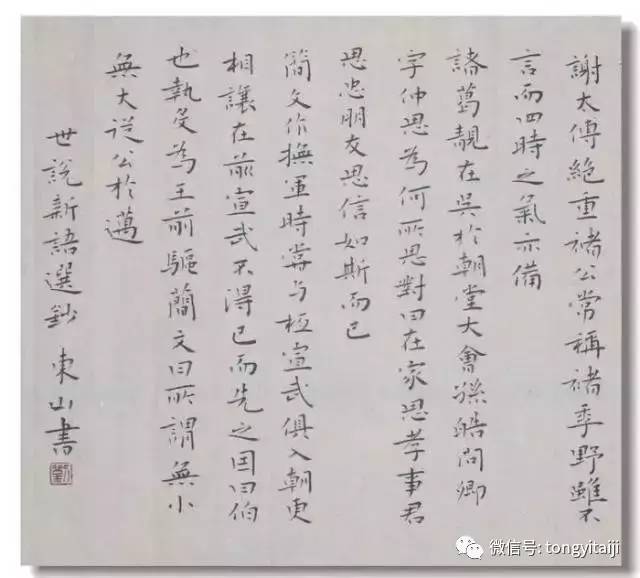 謝太傅絕重褚公常稱褚季野雖不
言而四時之氣亦備
諸葛靚在吳於朝堂大會孫皓問卿
字仲思為何所思對曰在家思孝事君
思忠朋友思信如斯而已
簡文作撫軍時嘗与桓宣武俱入朝更
相讓在前宣武不得已而先之因曰伯
也執殳為王前驅簡文曰所謂無小
無大從公於邁
世說新語選鈔 東山書
微信号: tongyitaiji